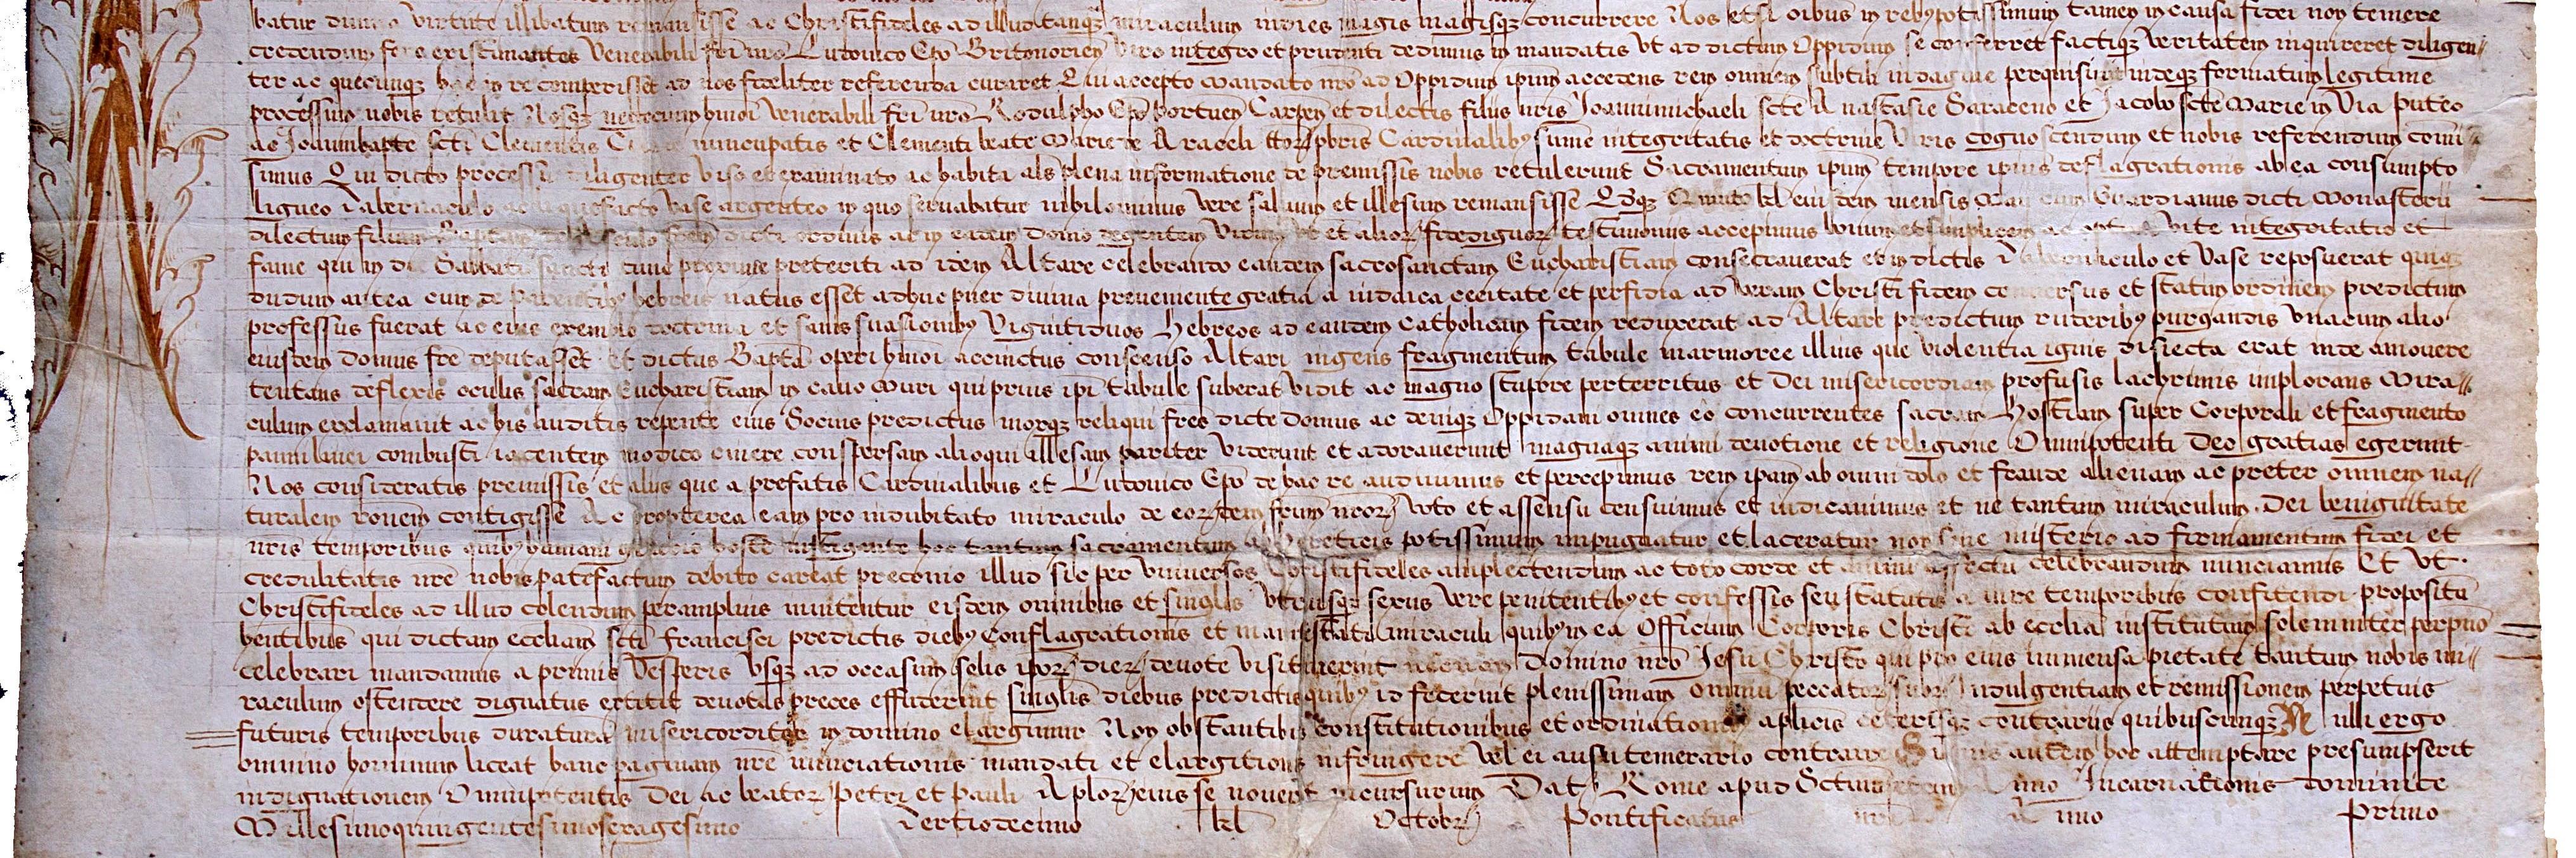 batur divina virtute illibatum remansisse ac Christifideles ad illud tanqz miraculum indies magis magisqz concurrere Nos etsi oibus in rebus potissimum tamen in causa fidei non temere
credendum fore existimantes Venerabili fri nro Ludovico Epo Britonorien viro integro et prudenti dedimus in mandatis vt ad dictum Oppidum se conferret factiqz veritatem inquireret diligen
ter ac quecumqz hac in re comperisset ad nos fideliter referenda curaret Qui accepto mandato nro ad Oppidum ipum accedens rem omnem subtili indagine perquisivit indeqz formatum legitime
processum nobis retulit Nosqz negocium hmoi Venerabili fri nro Rodulpho Epo Portuen Carpen et dilectis filiis nris Joannimichaeli scte Anastasie Saraceno et Jacobo scte Marie in Via Puteo
ac Joannibapte scti Clementis nuncupatis et Clementi beate Marie de Araceli ttor pbris Cardinalibus sume integritatis et doctrine Viris cognoscendum et nobis referendum comi
simus Qui dicto processu diligenter viso et examinato ac habita als plena informatione de premissis nobis retulerunt Sacramentum ipum tempore ipius deflagrationis ab ea consumpto
ligneo Tabernaculo ac liquefacto Vase argenteo in quo servabatur nihilominus vere salvum et illesum remansisse Qdqz Quinto kl eiusdem mensis Guardianus dicti Monasterii
dilectum filium ordinis ac in eadem Domo degentem Virum vt et alior fidedignor testimoniis accepimus bonum et simplicem ac vite integritatis et
fame qui in die Sabbati sancti tunc proxime preteriti ad idem Altare celebrando eandem sacrosanctam Eucharistiam consecraverat et in dictis Tabernaculo et Vase reposuerat quiqz
dudum antea cum de parentibus hebreis natus esset adhuc puer divina preveniente gratia a iudaica cecitate et perfidia ad veram Christi fidem conversus et statum ordinem predictum
professus fuerat ac eius exemplo doctrina et sanis suasionibus Vigintiduos Hebreos ad eandem Catholicam fidem reduxerat ad Altare predictum ruderibus purgandis vnacum alio
eiusdem domus fre deputasset et dictus Bapta operi hmoi accinctus conscenso Altari ingens fragmentum tabule marmoree illius que violentia ignis disiecta erat inde amovere
tentans deflexis oculis sacram Eucharistiam in cavo Muri qui prius ipi tabule suberat vidit ac magno stupore perterritus et Dei misericordiam profusis lachrimis implorans Mira
culum exclamavit ac his auditis repente eius Socius predictus morqz reliqui fres dicte domus ac deniqz Oppidani omnes eo concurrentes sacram Hostiam super Corporali et fragmento
panni linei combusti iacentem modico cinere conspersam alioqui illesam pariter viderunt et adoraverunt magnaqz animi devotione et religione Omnipotenti Deo gratias egerunt
Nos consideratis premissis et aliis que a prefatis Cardinalibus et Ludovico Epo de hac re audivimus et percepimus rem ipam ab omni dolo et fraude alienam ac preter omnem na
turalem ronem contigisse Ac propterea eam pro indubitato miraculo de eorundem frum nror voto et assensu censuimus et iudicavimus et ne tantum miraculum Dei benignitate
nris temporibus quibus humani generis hoste instigante hoc tantum sacramentum ab hereticis potissimum impugnatur et laceratur non sine misterio ad firmamentum fidei et
credulitatis nre nobis patefactum debito careat preconio illud sic per vniversos Christifideles amplectendum ac toto corde et animi affectu celebrandum nunciamus Et vt
Christifideles ad illud colendum peramplius invitentur eisdem omnibus et singulis vtriusqz sexus vere penitentibus et confessis seu statutis a iure temporibus confitendi propositu
hentibus qui dictam eccliam scti Francisci predictis diebus Conflagrationis et manifestati miraculi quibus in ea Officium Corporis Christi ab ecclia institutum solemniter perpuo
celebrari mandamus a primis Vesperis vsqz ad occasum solis ipor dier devote visitaverint Domino nro Jesu Christo qui pro eius immensa pietate tantum nobis mi
raculum ostendere dignatus extitit devotas preces effuderint singlis diebus predictis quibus id fecerint plenissimam omnium peccator suor Indulgentiam et remissionem perpetuis
futuris temporibus duraturam misericorditer in domino elargimur Non obstantibus constitutionibus et ordinationibus aplicis ceterisqz contrariis quibuscunqz Nulli ergo
omnino hominum liceat hanc paginam nre nunciationis mandati et elargitionis infringere vel ei ausu temerario contraire Siquis autem hoc attemptare presumpserit
indignationem Omnipotentis Dei ac beator Petri et Pauli Aplor eius se noverit incursurum Dat Rome apud Sctum petrum Anno Incarnationis dominice
Millesimoquingentesimosexagesimo Tertiodecimo kl Octobr Pontificatus nri Anno Primo